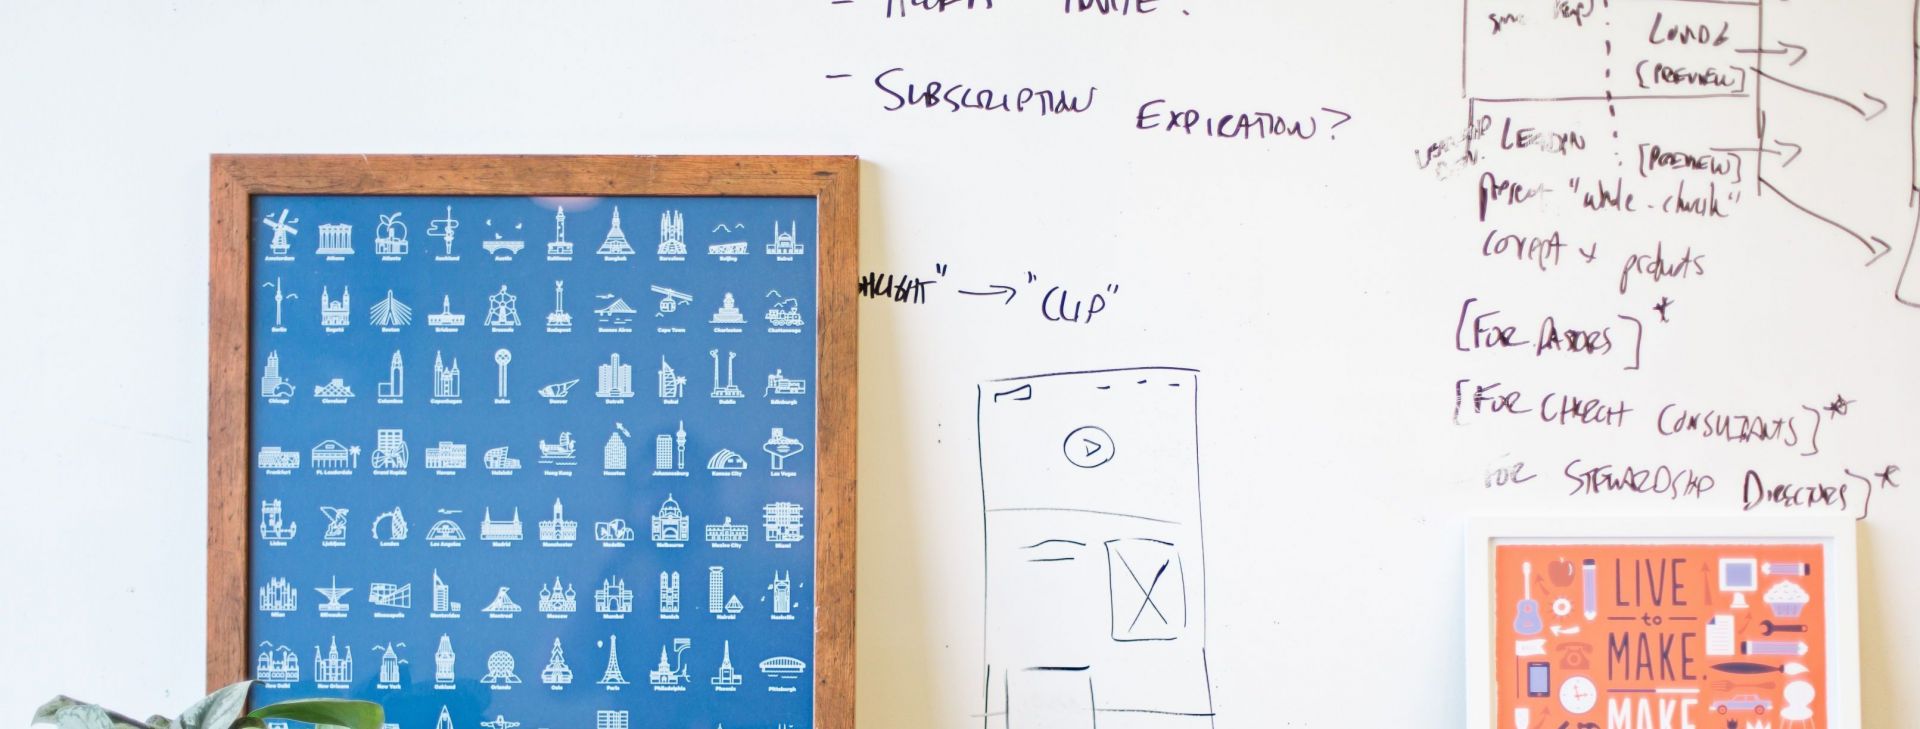 INVITE?
- SUBSCRIPTION EXPIRATION?
→ "CLIP"
[PREVIEW]
[PREVIEW]
"whole-church"
concept + products
[FOR PASTORS]*
[FOR CHURCH CONSULTANTS]*
FOR STEWARDSHIP DIRECTORS]*
Amsterdam Athens Atlanta Auckland Austin Baltimore Bangkok Barcelona Beijing Beirut
Berlin Bogotá Boston Brisbane Brussels Budapest Buenos Aires Cape Town Charleston Chattanooga
Chicago Cleveland Columbus Copenhagen Dallas Denver Detroit Dubai Dublin Edinburgh
Frankfurt Ft. Lauderdale Grand Rapids Havana Helsinki Hong Kong Houston Johannesburg Kansas City Las Vegas
Lisbon Ljubljana London Los Angeles Madrid Manchester Medellin Melbourne Mexico City Miami
Milan Milwaukee Minneapolis Montevideo Montreal Moscow Mumbai Munich Nairobi Nashville
New Delhi New Orleans New York Oakland Orlando Oslo Paris Philadelphia Phoenix Pittsburgh
LIVE
to
MAKE.
MAKE